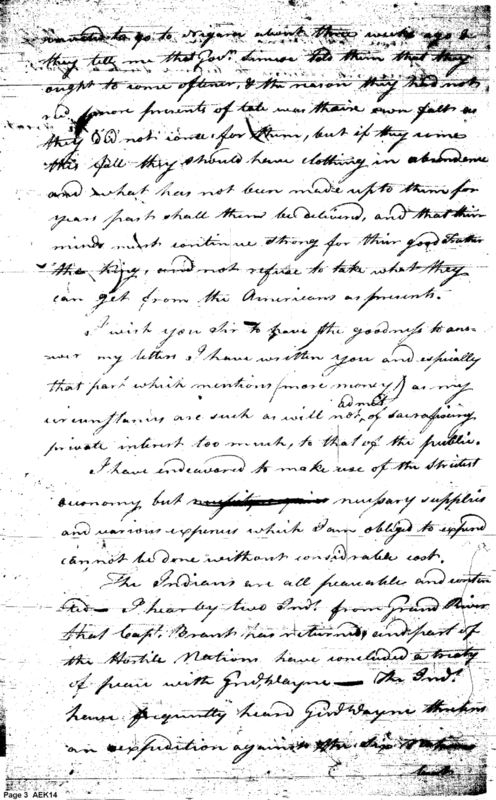 wanted to go to Niagara about three weeks ago &
they tell me that Govr. Simcoe told them that they
ought to come oftener, & the reason they had not
more presents of late was thair own falts as
they did not come for them, but if they come
this fall they should have clothing in abundence
and what has not been made up to them for
years past shall them be deliverd, and that thier
minds must continue strong for thier good Father
the King, and not refuse to take what they
can get from the Americans as presents.
I wish you Sir to have the goodness to ans-
wer my letters I have written you and espicially
that part which mentions (more money) as my
admit
circumstances are such as will not, of sacrafising
private interest too much, to that of the public.
I have endeavored to make use of the Strictest
oeconomy but nessary supplies
and various expences which I am obligd to expend
cannot be done without considerable cost.
The Indians are all peaceable and conten
ted— I hear by two Inds. from Grand River
that Capt. Brant has returned, and part of
the Hostile Nations have concluded a treaty
of peace with Genl. Wayne — The Inds.
have frequently heard Genl. Wayne
an expedition against the Six Nations
but
Page 3 AEK14